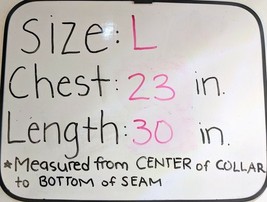 Size: L
Chest: 23 in.
Length: 30 in.
*Measured from CENTER of COLLAR
to BOTTOM of SEAM